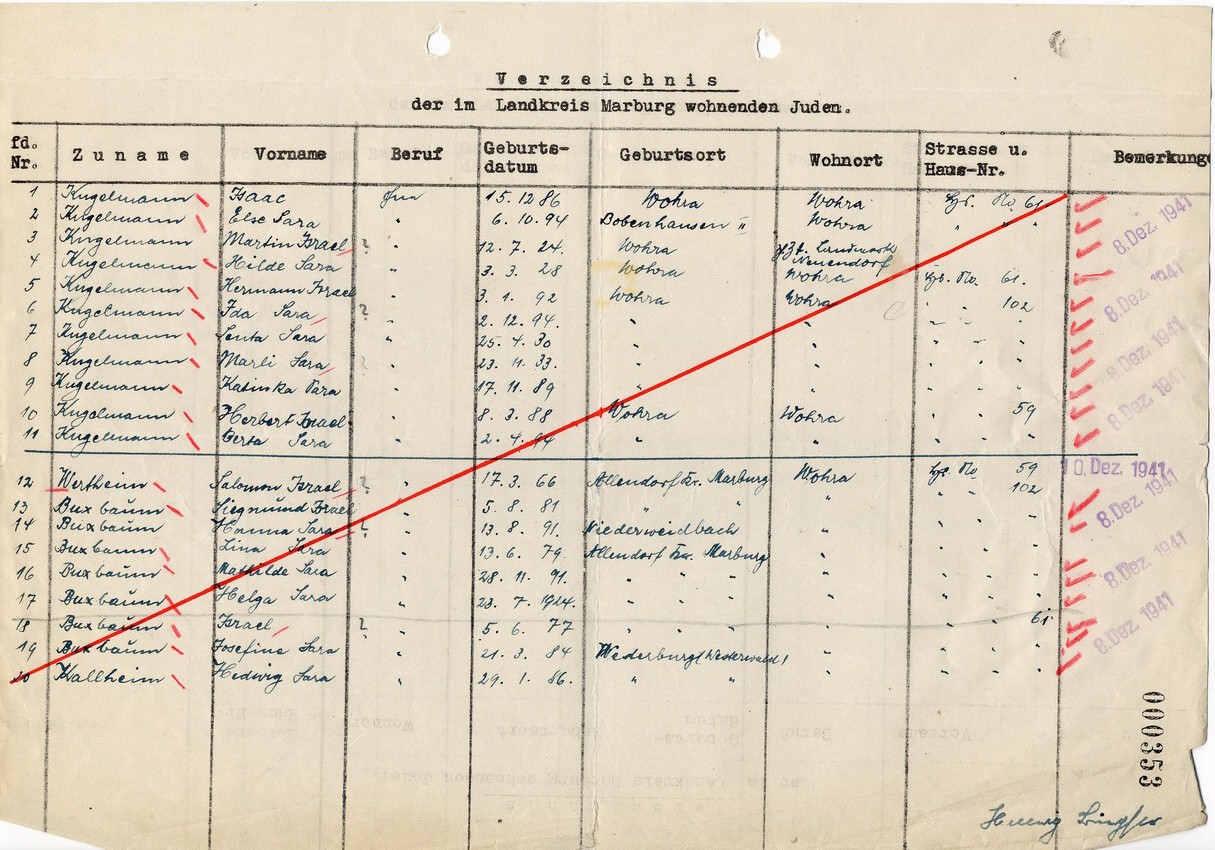 Verzeichnis
der im Landkreis Marburg wohnenden Juden.
fd. Nr. Zuname Vorname Beruf Geburts-datum Geburtsort Wohnort Strasse u. Haus-Nr. Bemerkunge
1 Kugelmann Isaac 15. 12 86 Wohra Wohra Hs. No. 61
2 Kugelmann Else Sara " 6. 10. 94 Bobenhausen II Wohra " "
3 Kugelmann Martin Israel ? 12. 7. 24. Wohra z.Zt. Landwerk Neuendorf
4 Kugelmann Hilde Sara " 3. 3. 28 Wohra Wohra Hs. No. 61.
5 Kugelmann Hermann Israel " 3. 1. 92 Wohra Wohra " " 102
6 Kugelmann Ida Sara ? " 2. 12. 94. " " " "
7 Kugelmann Senta Sara " 25. 4. 30 " " " "
8 Kugelmann Marli Sara ? " 23. 11. 33. " " " "
9 Kugelmann Katinka Sara " 17. 11. 89 " " " "
10 Kugelmann Herbert Israel " 8. 3. 88 Wohra Wohra " " 59
11 Kugelmann Berta Sara " 2. 4. 94 " " " "
12 Wertheim Salomon Israel ? " 17. 3. 66 Allendorf Kr. Marburg Wohra Hs. No 59
13 Buxbaum Siegmund Israel " 5. 8. 81 " " " " 102
14 Buxbaum Hanna Sara ? " 13. 8. 91. Niederweidbach " " "
15 Buxbaum Lina Sara " 13. 6. 79. Allendorf Kr. Marburg " " "
16 Buxbaum Mathilde Sara " 28. 11. 91. " " " " "
17 Buxbaum Helga Sara " 23. 7. 1924. " " " " "
18 Buxbaum Israel ? " 5. 6. 77 " " " " 61
19 Buxbaum Josefine Sara " 21. 3. 84 (Westerwald) " " "
20 Kallheim Hedwig Sara " 29. 1. 86. " " " " "
8. Dez. 1941
8. Dez. 1941
8. Dez. 1941
8. Dez. 1941
10. Dez. 1941
8. Dez. 1941
8. Dez. 1941
8. Dez. 1941
000353